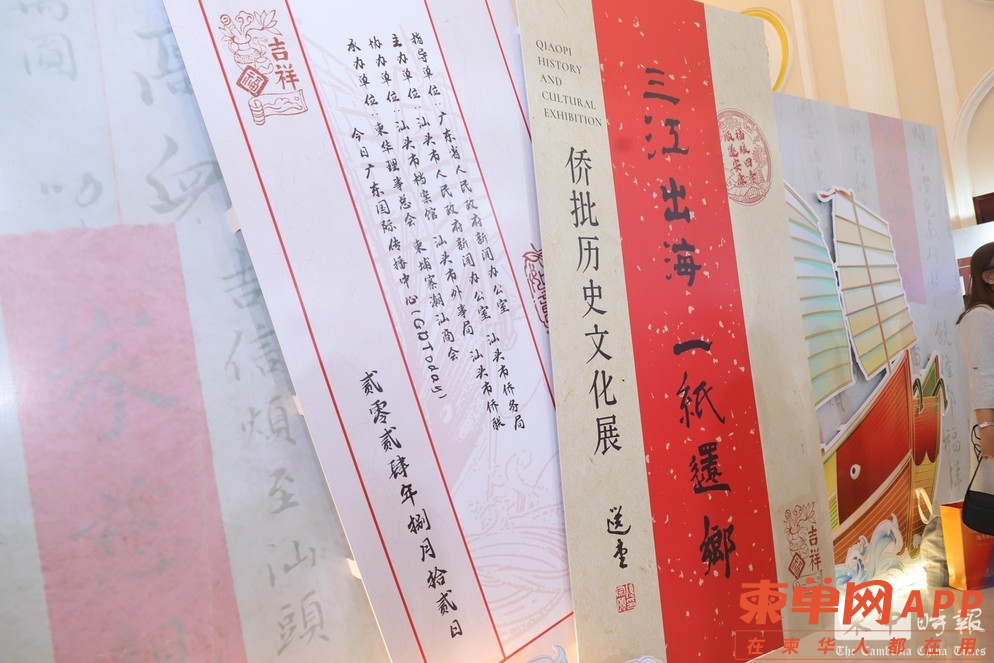 吉祥
指导单位:广东省人民政府新闻办公室
主办单位:汕头市人民政府新闻办公室 汕头市侨务局
汕头市档案馆 汕头市外事局 汕头市侨联
协办单位:柬华理事总会 柬埔寨潮汕商会
承办单位:今日广东国际传播中心(GDToday)
贰零贰肆年捌月拾贰日
QIAOPI
HISTORY
AND
CULTURAL
EXHIBITION
侨批历史文化展
选堂
三江出海 一紙還鄉
吉祥
信煩至汕頭
柬单网APP
在柬华人都在用
柬中時報
The Cambodia China Times